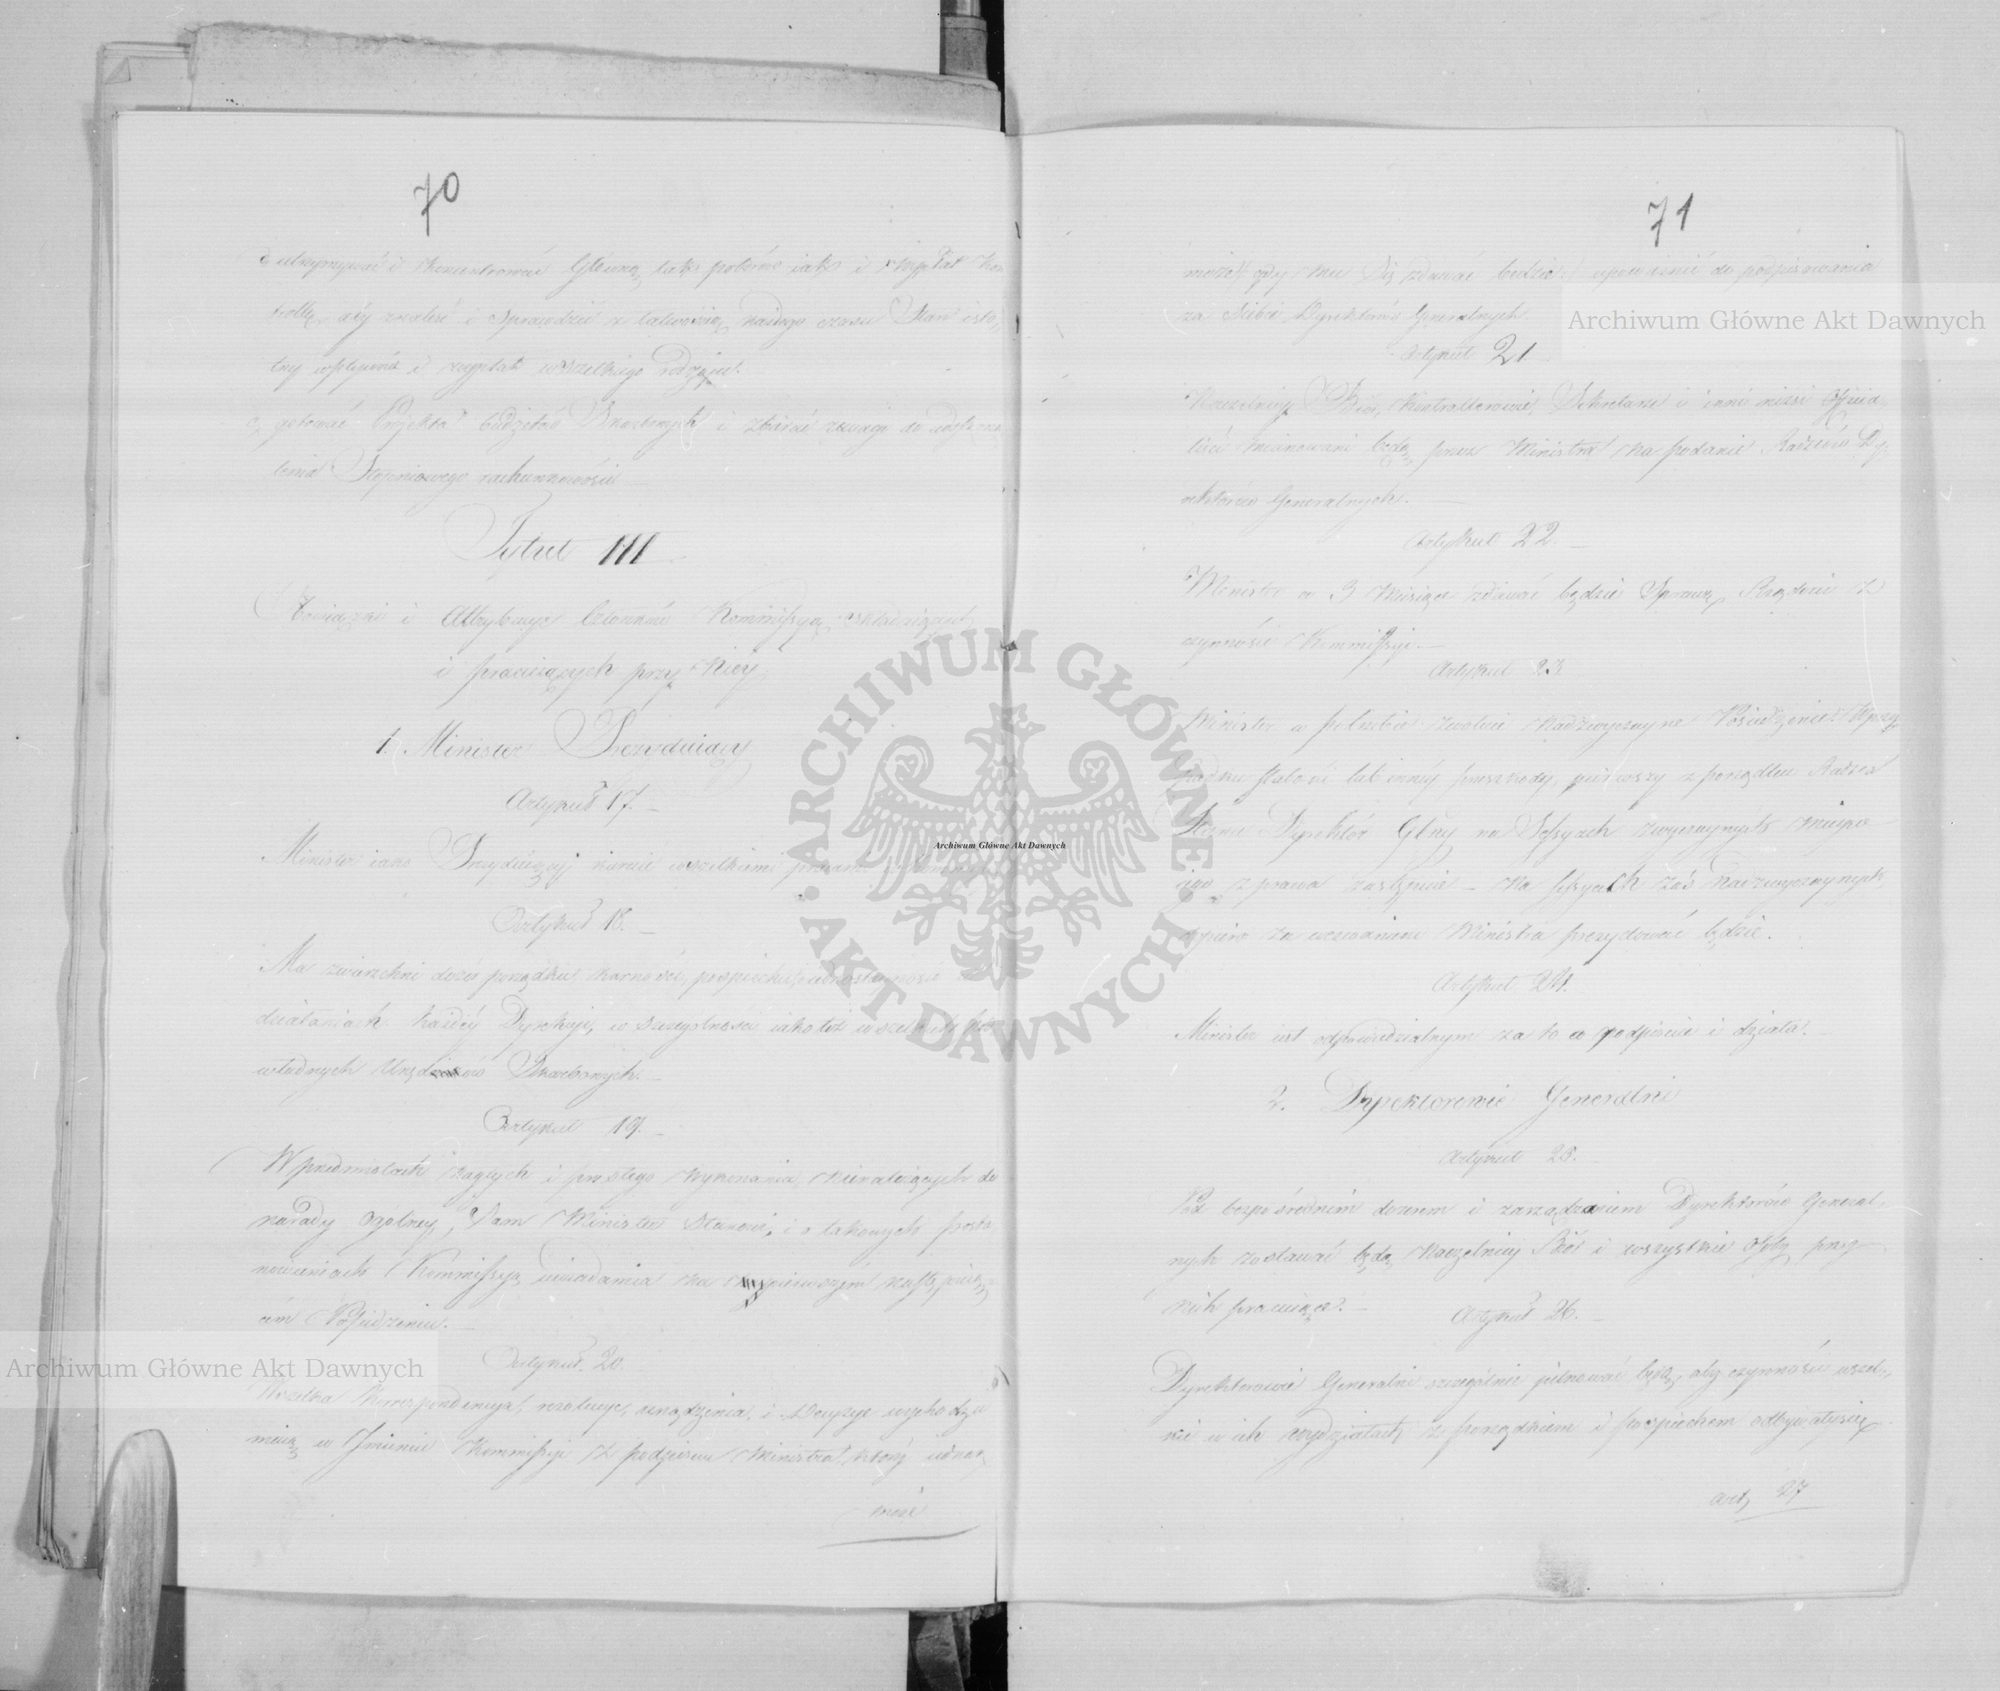 70
utrzymywać i koncentrować Główną tak poborów jak i wypłat Kon
trollę, aby znaleść i sprawdzić z łatwością każdego czasu Stan isto
tny wpływów i wypłat wszelkiego rodzaju.
gotować Projekta budżetów Skarbowych i zbierać uwagi do
Stopniowego rachunkowości
Tytuł III
i Attrybucye Członków Kommissyą składających
i pracujących przy Niéy
1. Minister Prezydujący
Artykuł 17.
Minister jako Prezydujący kieruie wszelkiemi pracami
Artykuł 18.
Ma zwierzchni dozór porządku, karności, pospiechu,
działaniach każdéy Dyrekcyi, w szczególności jako też wszelkich po
władnych Urzędników Skarbowych.
Artykuł 19.
W przedmiotach nagłych i prostego wykonania nienależących do
narady ogólney, Sam Minister Stanowi, i o takowych posta
nowieniach Kommissyą uwiadamia na naypierwszém następują
cém Posiedzeniu.
Artykuł 20.
Wszelka Korrespondencya, rezolucye, urządzenia, i Decyzye wychodzić
maią w Imieniu Kommissyi z podpisem Ministra, który iednak
może
71
może gdy mu się zdawać będzie upoważnić do podpisywania
za Siebie Dyrektorów Generalnych.
Artykuł 21
Naczelnicy Biór, Kontrollerowie, Sekretarze i inni niżsi Officia
liści mianowani będą przez Ministra na podanie Radzców Dy
rektorów Generalnych.
Artykuł 22.
Minister co 3 Miesiące zdawać będzie Sprawę Rządowi z
czynności Kommissyi.
Artykuł 23.
Minister w potrzebie zwołuie Nadzwyczayne Posiedzenie.
słabości lub innéy przeszkody, pierwszy z porządku Radzca
Stanu Dyrektor Glny na Sessyach zwyczaynych mieysce
jego z prawa zastępuie - na sessyach zaś Nadzwyczaynych
dopiero za wezwaniem Ministra prezydować będzie.
Artykuł 24.
Minister iest odpowiedzialnym za to co podpisuie i działa.
2. Dyrektorowie Generalni
Artykuł 25.
Pod bezpośrednim dozorem i zarządzaniem Dyrektorów General
nych zostawać będą Naczelnicy Biór i wszystkie osoby przy
nich pracuiące.
Artykuł 26.
Dyrektorowie Generalni szczególnie pilnować będą, aby czynności wszel
kie w ich wydziałach z porządkiem i pospiechem odbywały się
Art. 27
Archiwum Główne Akt Dawnych
Archiwum Główne Akt Dawnych
Archiwum Główne Akt Dawnych
ARCHIWUM GŁÓWNE AKT DAWNYCH